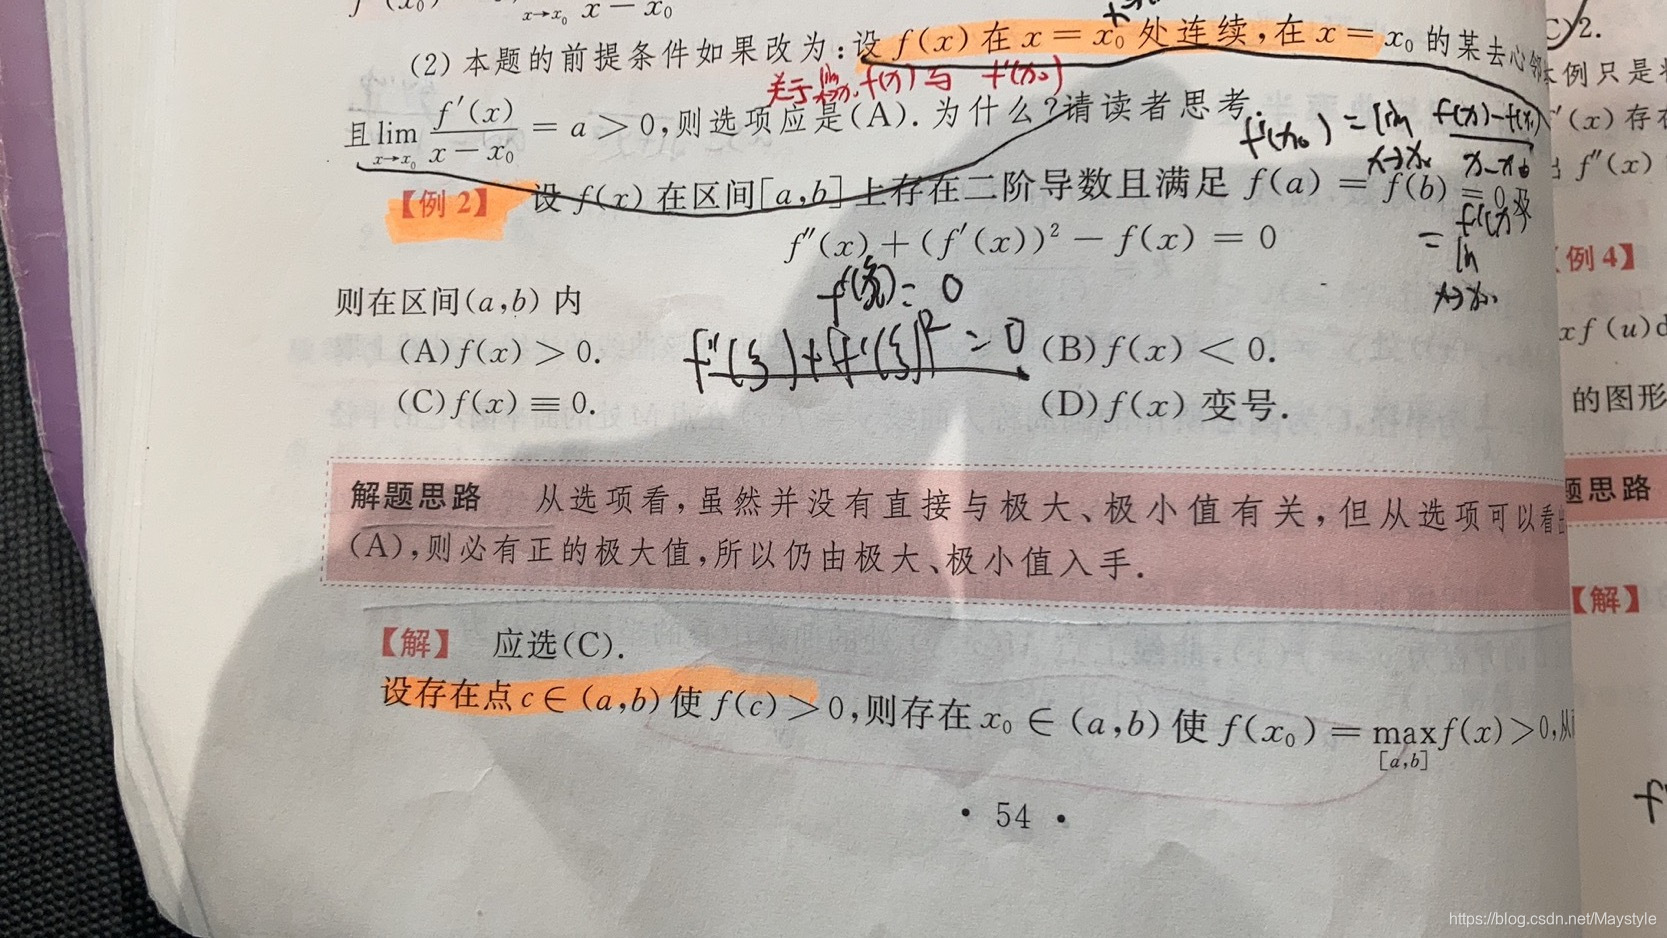 x→x₀ x − x₀
(2)本题的前提条件如果改为:设 f(x)在 x = x₀ 处连续,在 x = x₀ 的某去心邻
关于lim x→x₀ f(x)与 f'(x₀)
且lim x→x₀ f'(x)/(x − x₀) = a > 0,则选项应是(A). 为什么?请读者思考.
f'(x₀) = lim x→x₀ (f(x)−f(x₀))/(x−x₀)
【例 2】 设 f(x)在区间[a,b]上存在二阶导数且满足 f(a) = f(b) = 0 及
f″(x) + (f′(x))² − f(x) = 0
= lim x→x₀ f'(x)
f(ξ) = 0
则在区间(a,b) 内
f″(ξ)+[f'(ξ)]² = 0
(A) f(x) > 0. (B) f(x) < 0.
(C) f(x) ≡ 0. (D) f(x) 变号.
解题思路 从选项看,虽然并没有直接与极大、极小值有关,但从选项可以看出
(A),则必有正的极大值,所以仍由极大、极小值入手.
【解】 应选(C).
设存在点 c ∈ (a,b)使 f(c) > 0,则存在 x₀ ∈ (a,b)使 f(x₀) = max[a,b] f(x) > 0,从
· 54 ·
C) 2.
例只是
′(x)存在
f″(x)
【例 4】
xf(u)d
的图形
题思路
【解】
https://blog.csdn.net/Maystyle